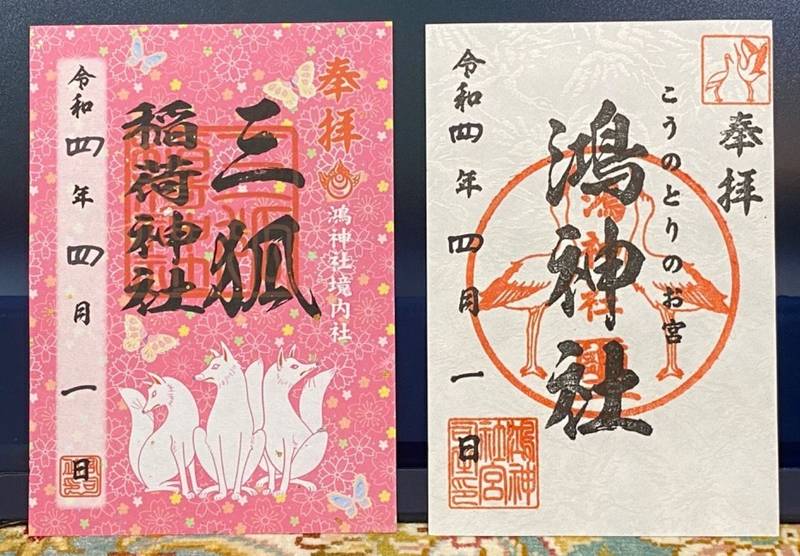 奉拝
鴻神社境内社
三狐
稲荷神社
令和四年四月一日
奉拝
こうのとりのお宮
鴻神社
令和四年四月一日
鴻神
社宮